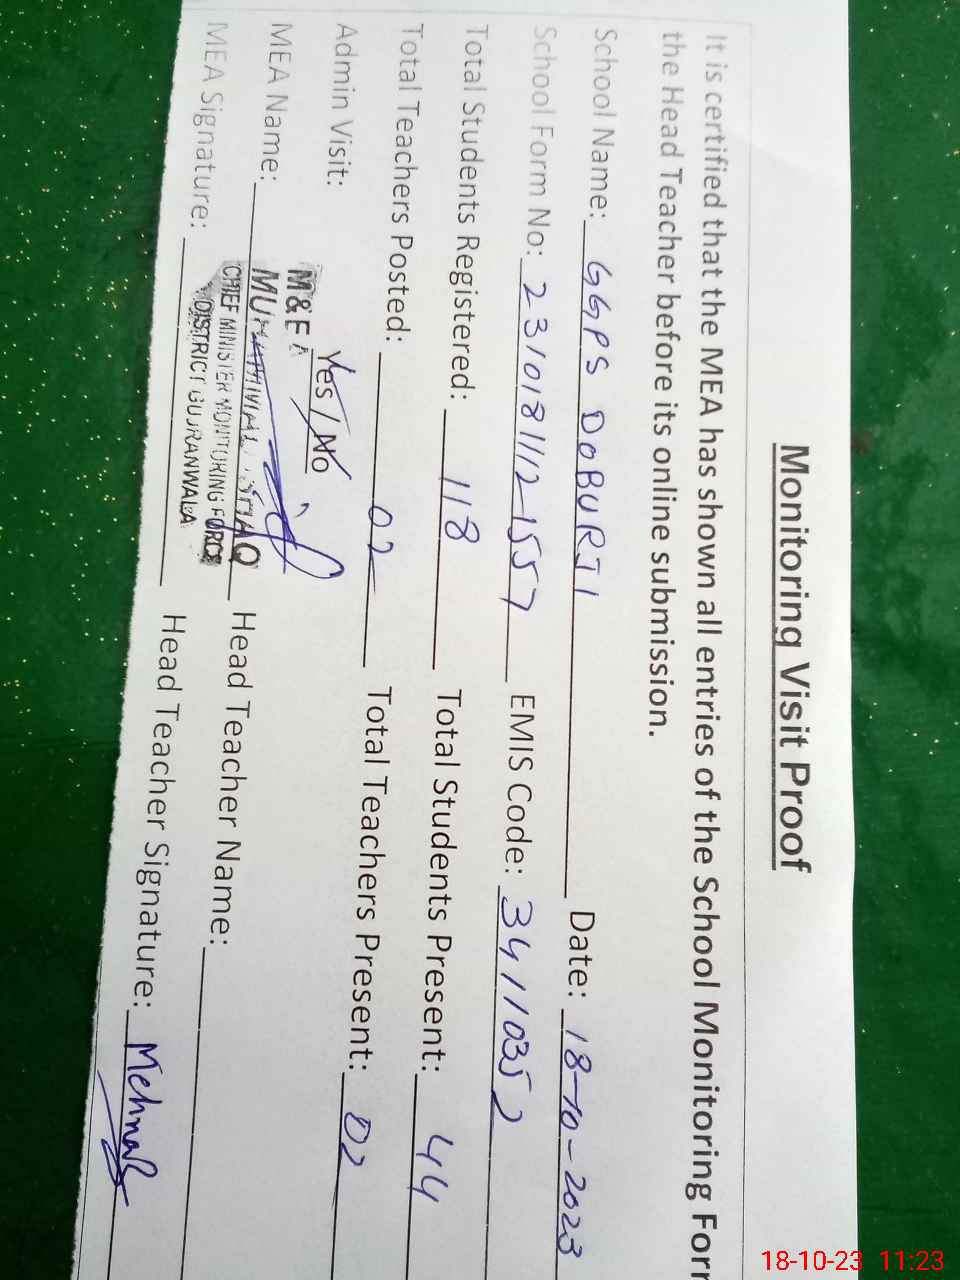 Monitoring Visit Proof
It is certified that the MEA has shown all entries of the School Monitoring Form
the Head Teacher before its online submission.
School Name: GGPS DOBURJI Date: 18-10-2023
School Form No: 2310181112-1557 EMIS Code: 34110352
Total Students Registered: 118 Total Students Present: 44
Total Teachers Posted: 02 Total Teachers Present: 02
Admin Visit: Yes / No
M & E
MEA Name: Head Teacher Name:
CHIEF MINISTER MONITORING FORCE
DISTRICT GUJRANWALA
MEA Signature: Head Teacher Signature:
18-10-23 11:23